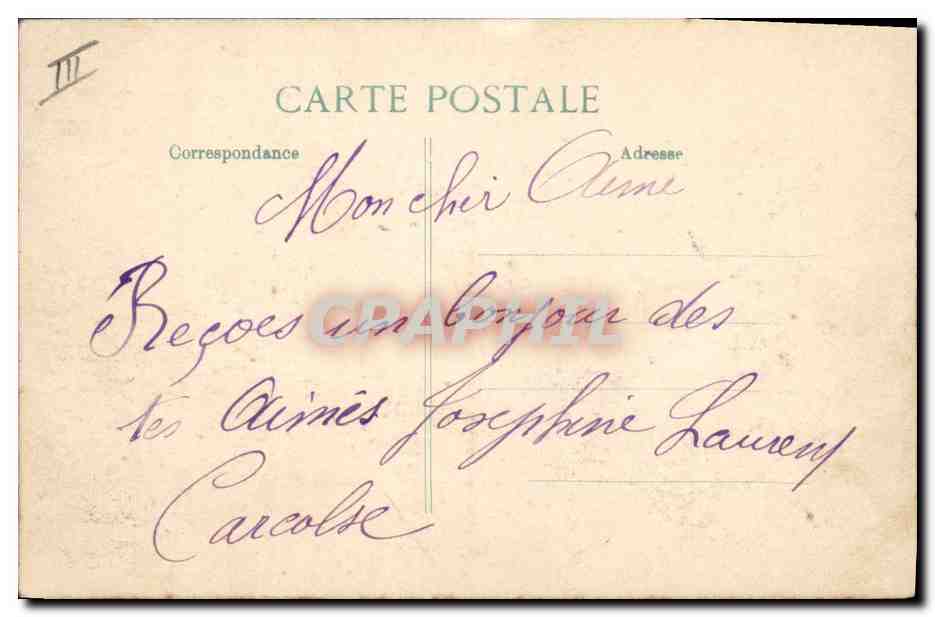 III
CARTE POSTALE
Correspondance
Adresse
Mon cher Aime
Reçoes un bonjour des
tes Aimés Josephine Laurent
Carcolse
CPAPHIL